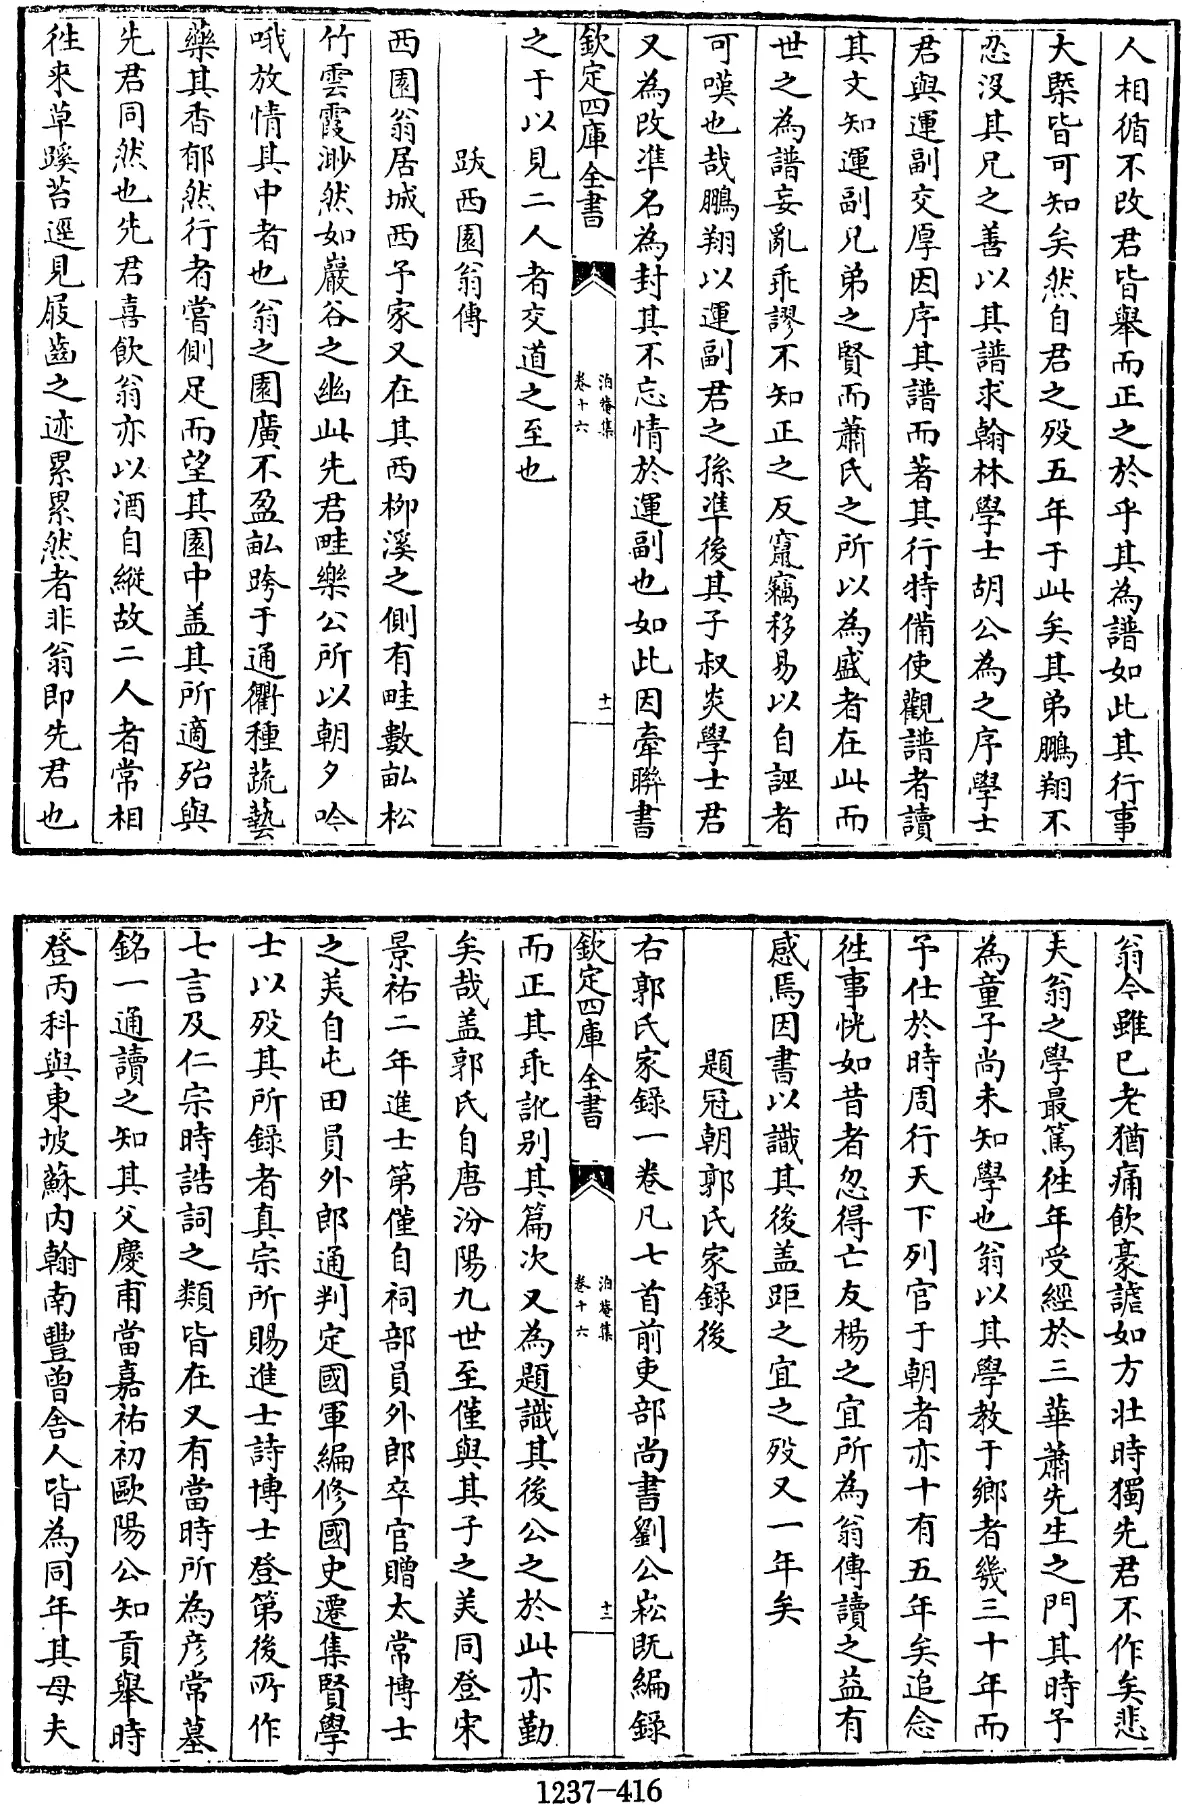 人相循不改君皆舉而正之於乎其為譜如此其行事
大槩皆可知矣然自君之歿五年于此矣其弟鵬翔不
忍沒其兄之善以其譜求翰林學士胡公為之序學士
君與運副交厚因序其譜而著其行特備使觀譜者讀
其文知運副兄弟之賢而蕭氏之所以為盛者在此而
世之為譜妄亂乖謬不知正之反竄竊移易以自誣者
可嘆也哉鵬翔以運副君之孫準後其子叔炎學士君
又為改準名為封其不忘情於運副也如此因牽聯書
欽定四庫全書
泊菴集
卷十六
十一
之于以見二人者交道之至也
跋西園翁傳
西園翁居城西予家又在其西柳溪之側有畦數畝松
竹雲霞渺然如巖谷之幽此先君畦樂公所以朝夕吟
哦放情其中者也翁之園廣不盈畝跨于通衢種蔬藝
藥其香郁然行者嘗側足而望其園中盖其所適殆與
先君同然也先君喜飲翁亦以酒自縱故二人者常相
徃來草蹊苔逕見屐齒之迹累累然者非翁即先君也
翁今雖已老猶痛飲豪謔如方壯時獨先君不作矣悲
夫翁之學最篤徃年受經於三華蕭先生之門其時予
為童子尚未知學也翁以其學教于鄉者幾三十年而
予仕於時周行天下列官于朝者亦十有五年矣追念
徃事恍如昔者忽得亡友楊之宜所為翁傳讀之益有
感焉因書以識其後盖距之宜之歿又一年矣
題冠朝郭氏家錄後
右郭氏家錄一卷凡七首前吏部尚書劉公崧既編錄
欽定四庫全書
泊菴集
卷十六
十二
而正其乖訛别其篇次又為題識其後公之於此亦勤
矣哉盖郭氏自唐汾陽九世至僅與其子之美同登宋
景祐二年進士第僅自祠部員外郎卒官贈太常博士
之美自屯田員外郎通判定國軍編修國史遷集賢學
士以歿其所錄者真宗所賜進士詩博士登第後所作
七言及仁宗時誥詞之類皆在又有當時所為彦常墓
銘一通讀之知其父慶甫當嘉祐初歐陽公知貢舉時
登丙科與東坡蘇内翰南豐曾舍人皆為同年其母夫
1237-416